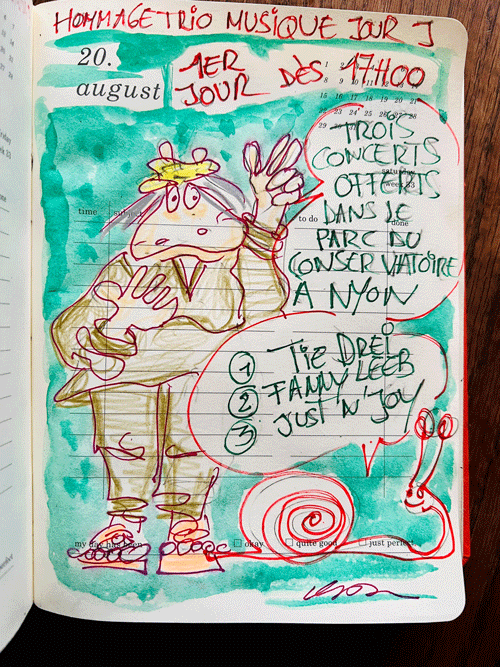 HOMMAGE TRIO MUSIQUE JOUR J
20.
august
1ER
JOUR DÈS 17H00
TROIS
CONCERTS
OFFERTS
DANS LE
PARC DU
CONSERVATOIRE
A NYON
saturday
week 33
time
subject
to do
done
1 TIE DREI
2 FANNY LEEB
3 JUST'N'JOY
my day has been
okay
quite good
just perfect